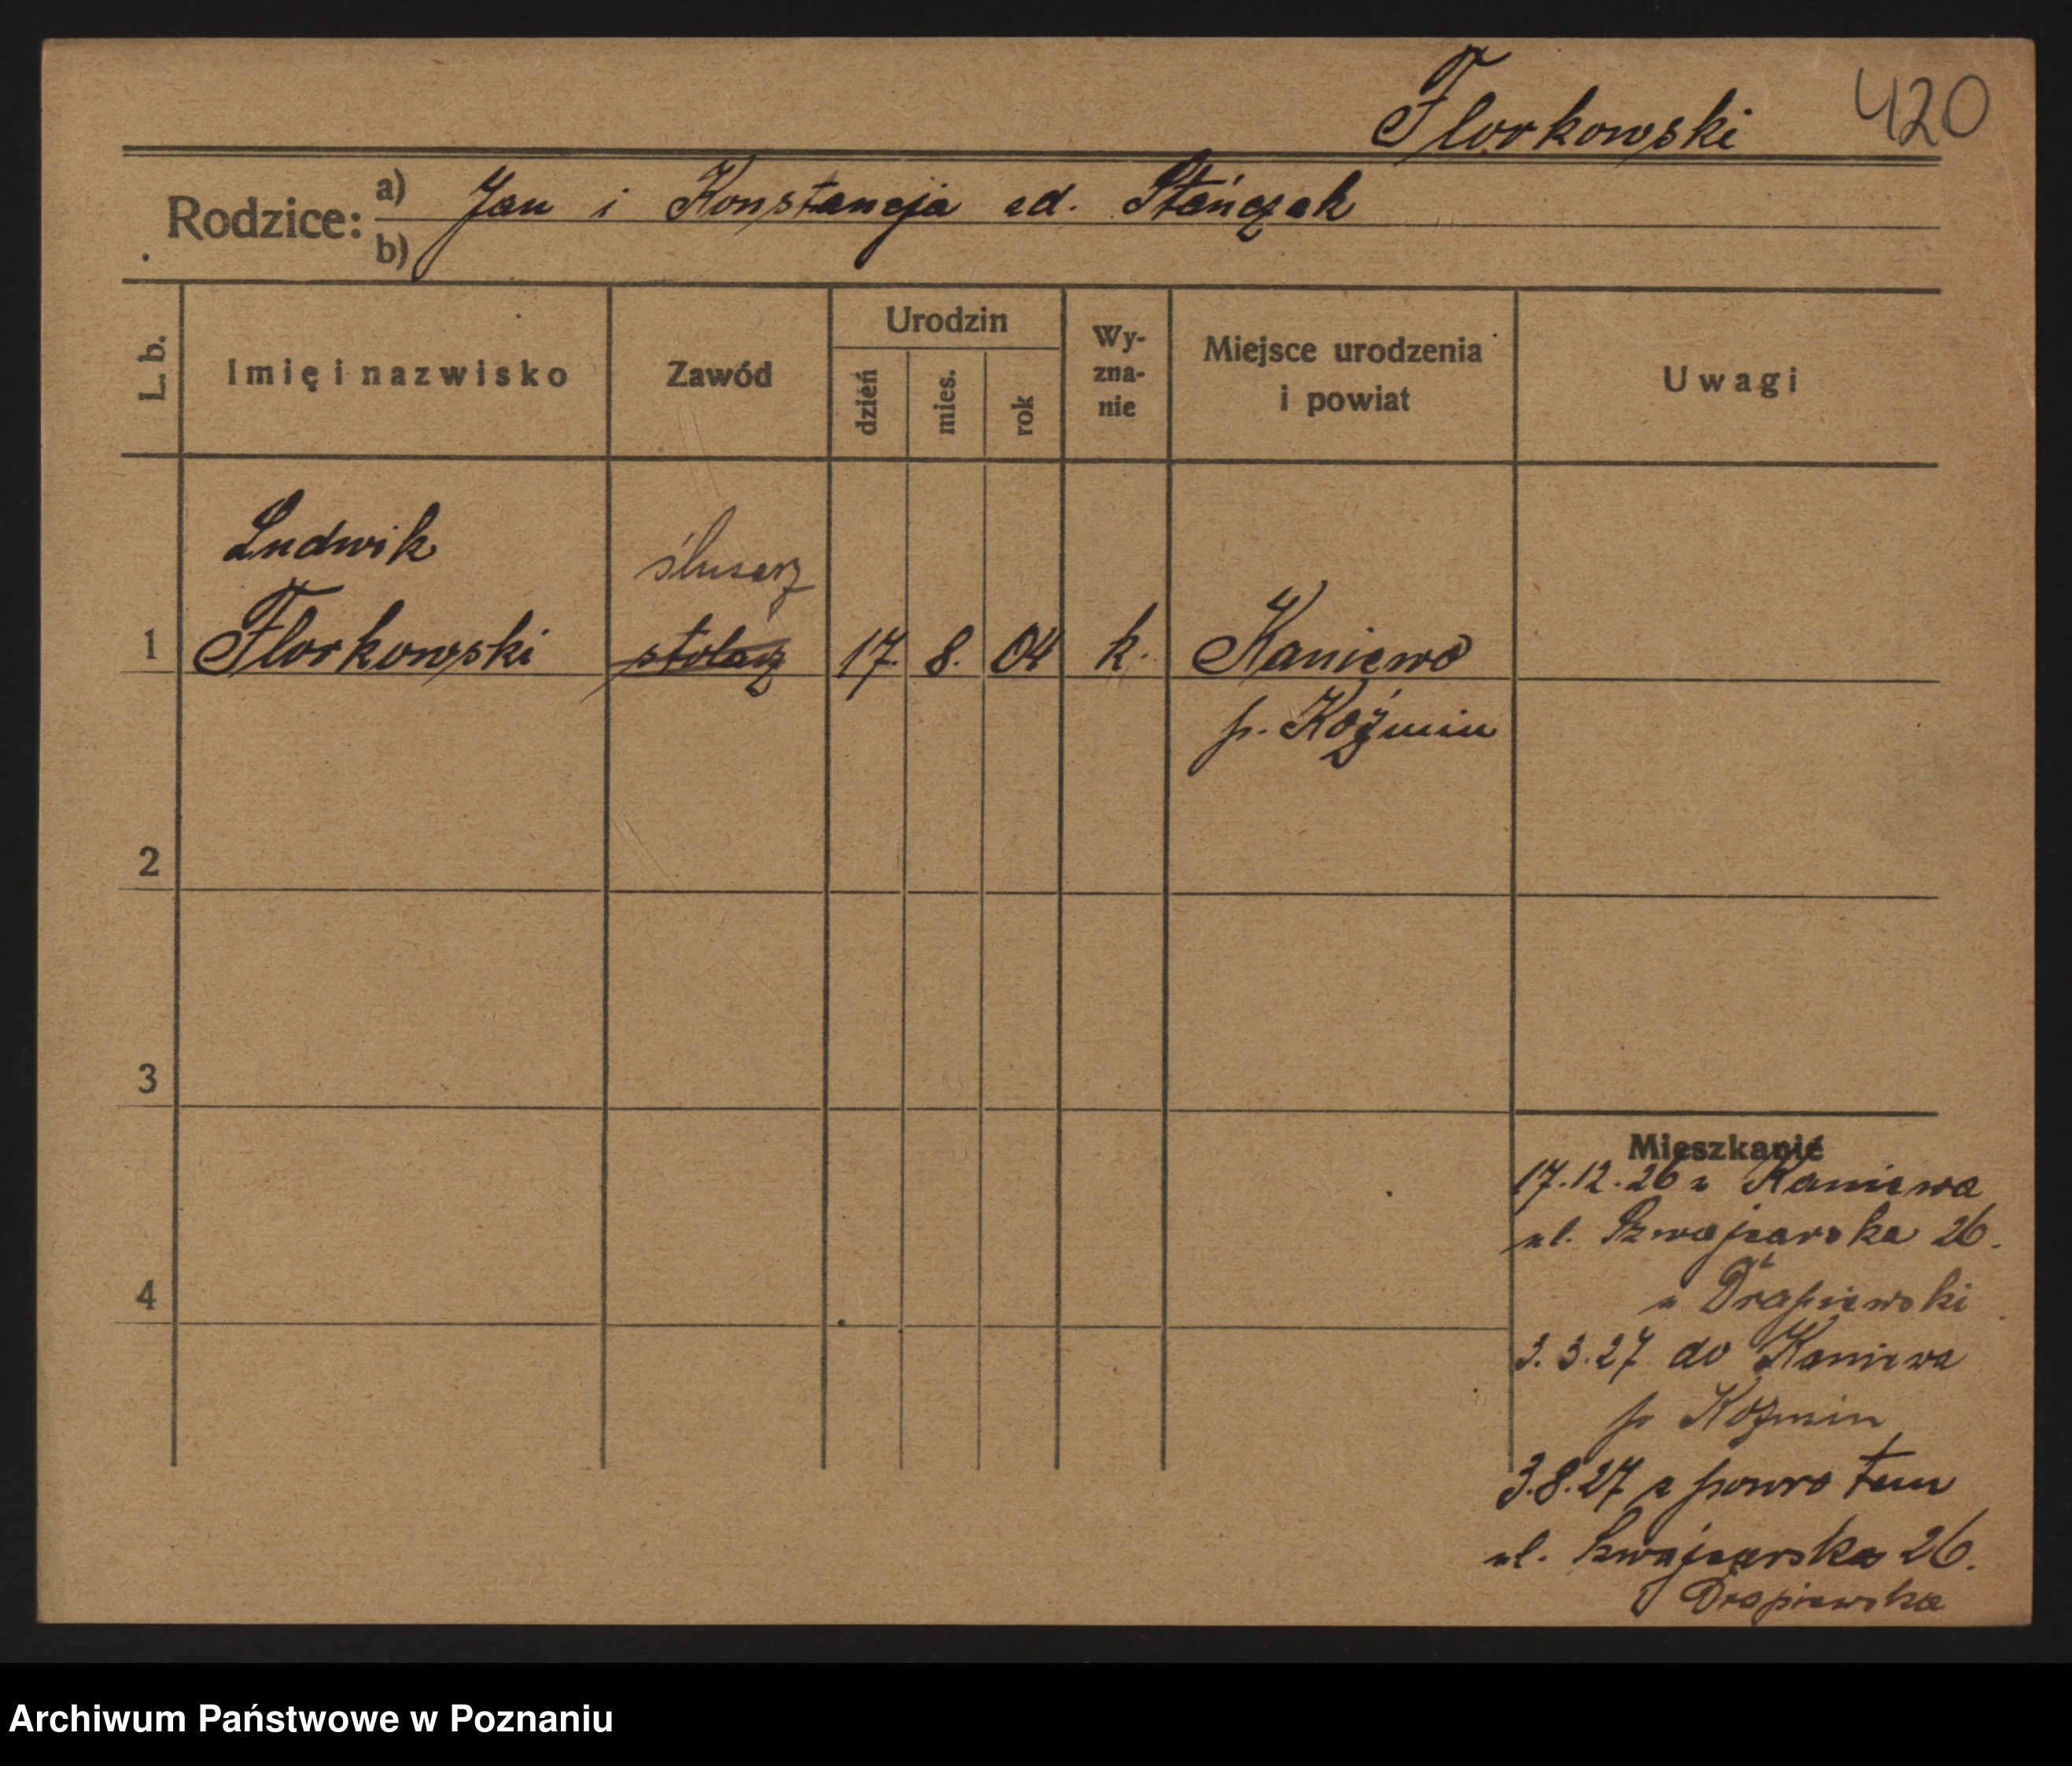 Florkowski 420
Rodzice: a) Jan i Konstancja zd. Stańczak
b)
L. b. Imię i nazwisko Zawód Urodzin dzień mies. rok Wy-zna-nie Miejsce urodzenia i powiat Uwagi
Ludwik
ślusarz
1 Florkowski stolarz 17. 8. 04 k. Kaniewo
p. Koźmin
2
3
Mieszkanie
17.12.26 z Kaniewa
ul. Szwajcarska 26.
4
u Drapiewski
3.3.27 do Kaniewa
p Kozmin
3.8.27 z powrotem
ul. Szwajcarska 26.
Drapiewska
Archiwum Państwowe w Poznaniu